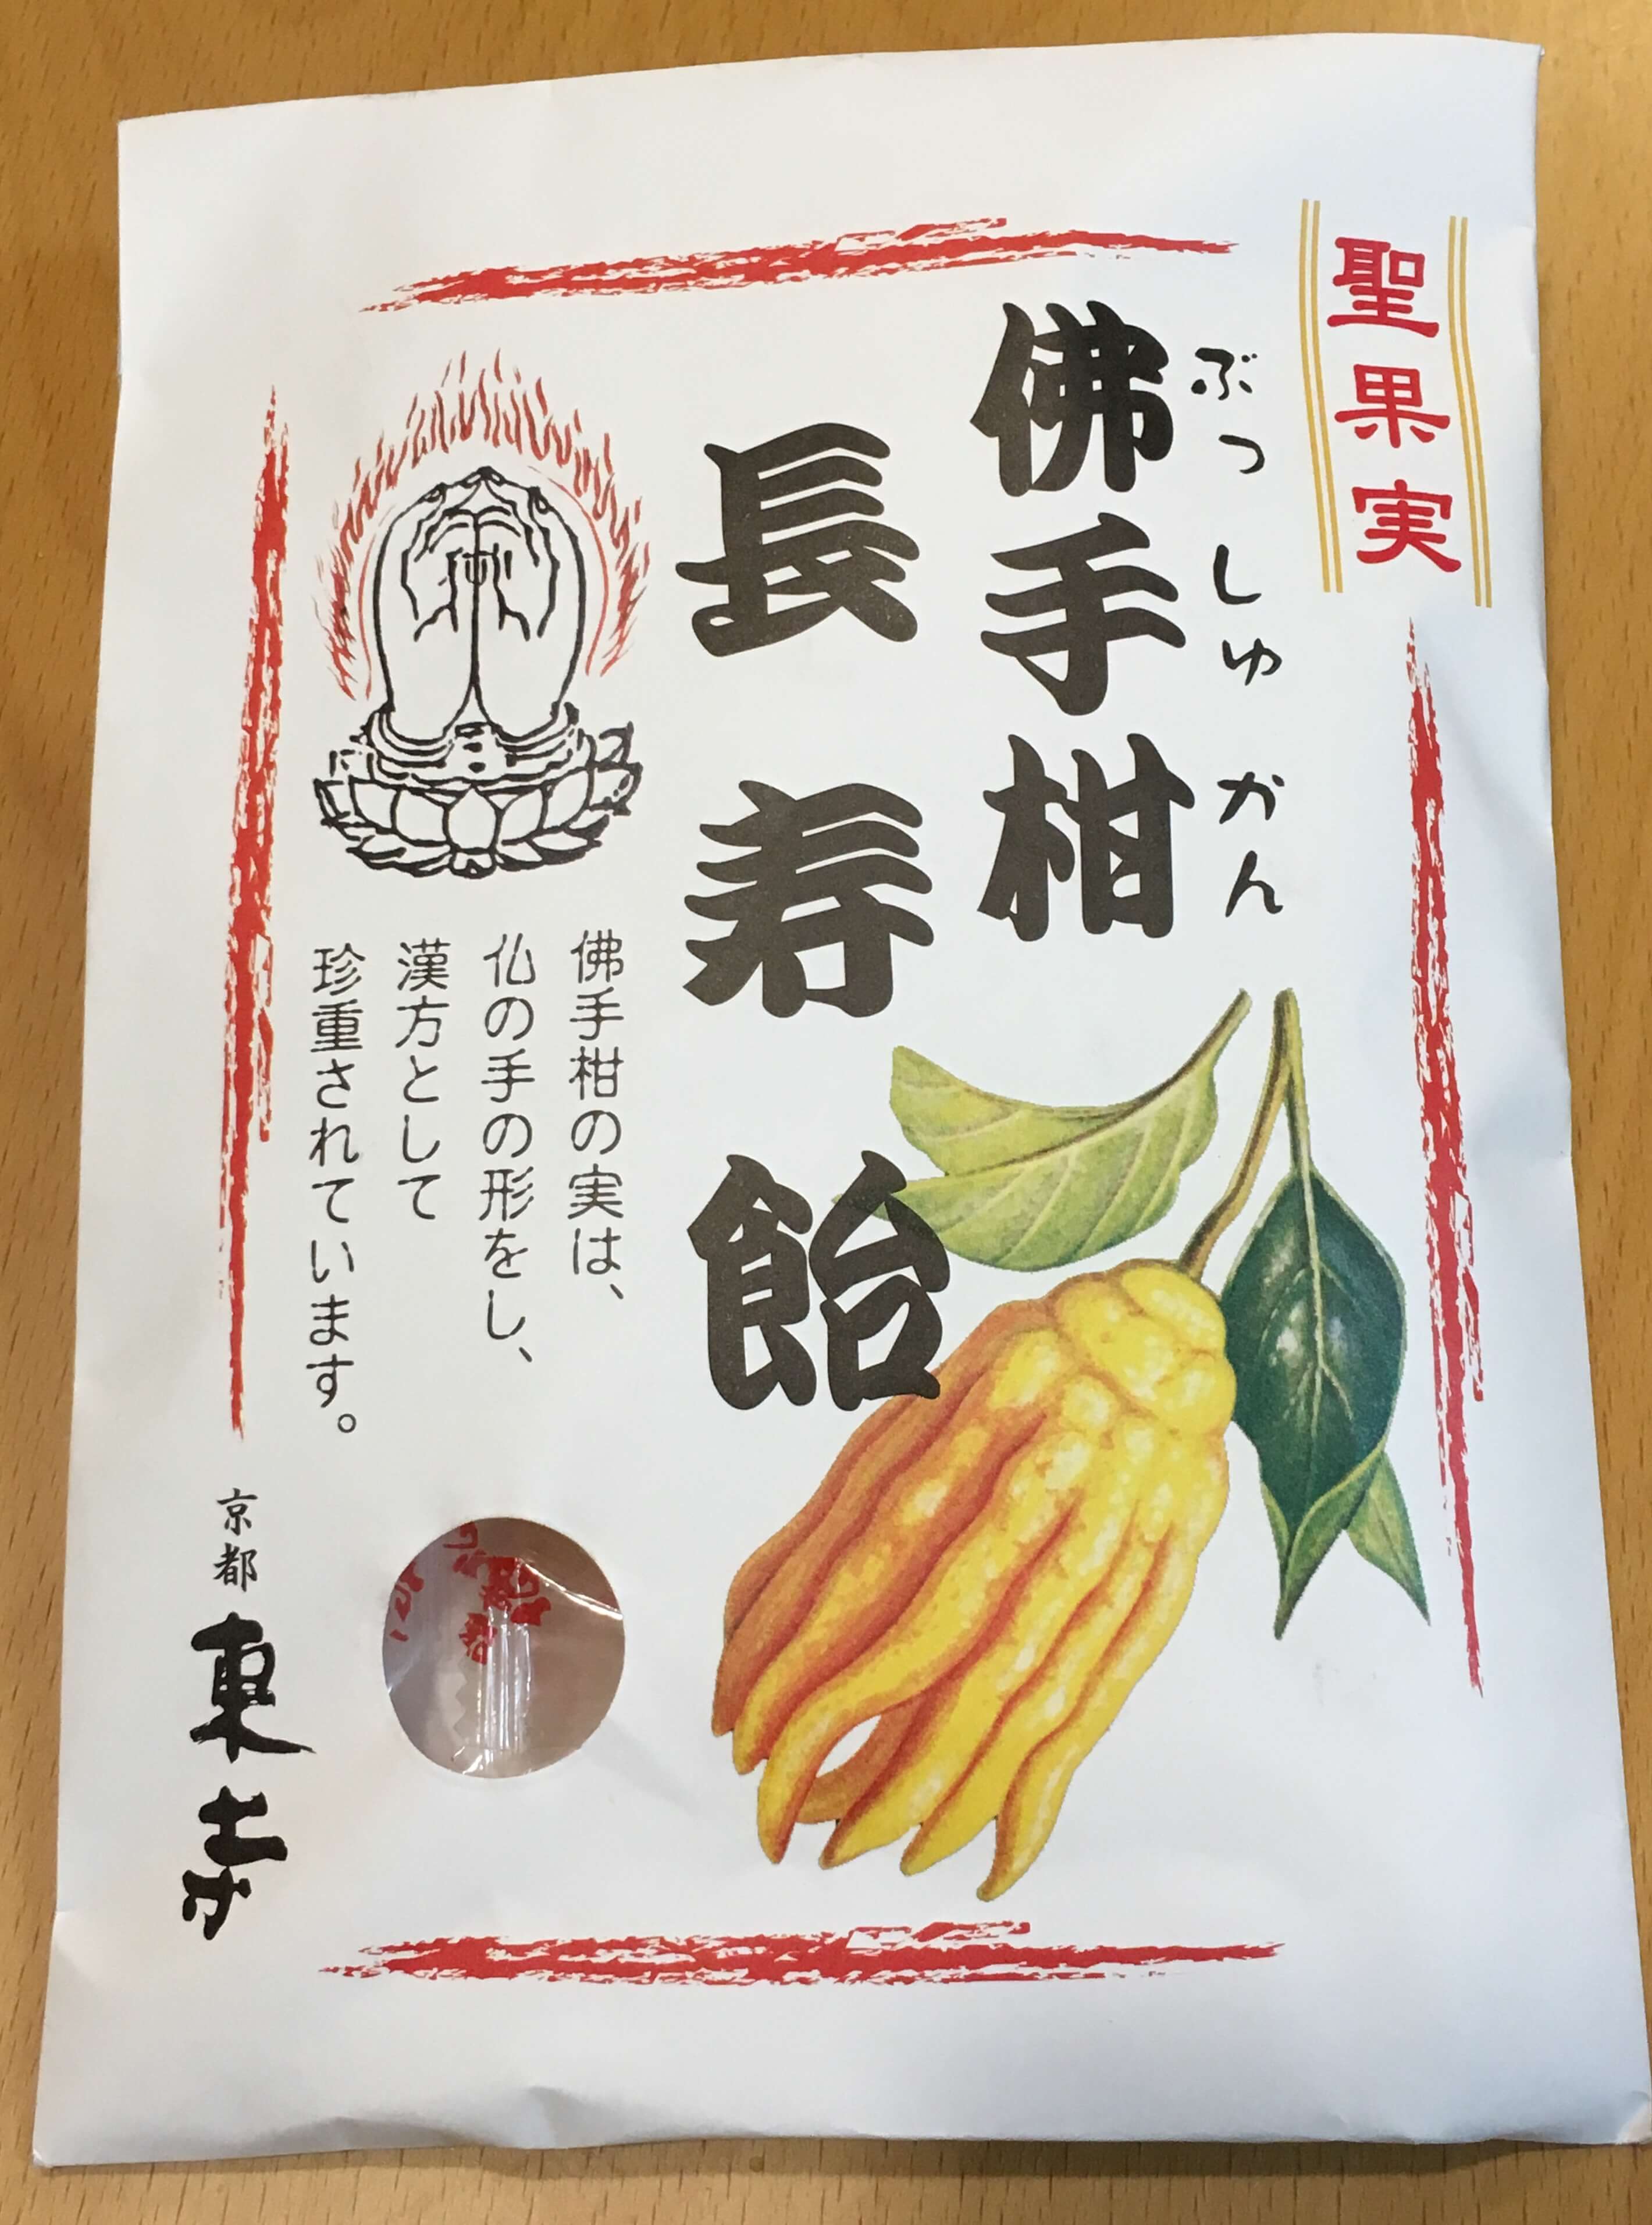 聖果実
ぶっしゅかん
佛手柑
長寿飴
佛手柑の実は、
仏の手の形をし、
漢方として
珍重されています。
京都
東寺